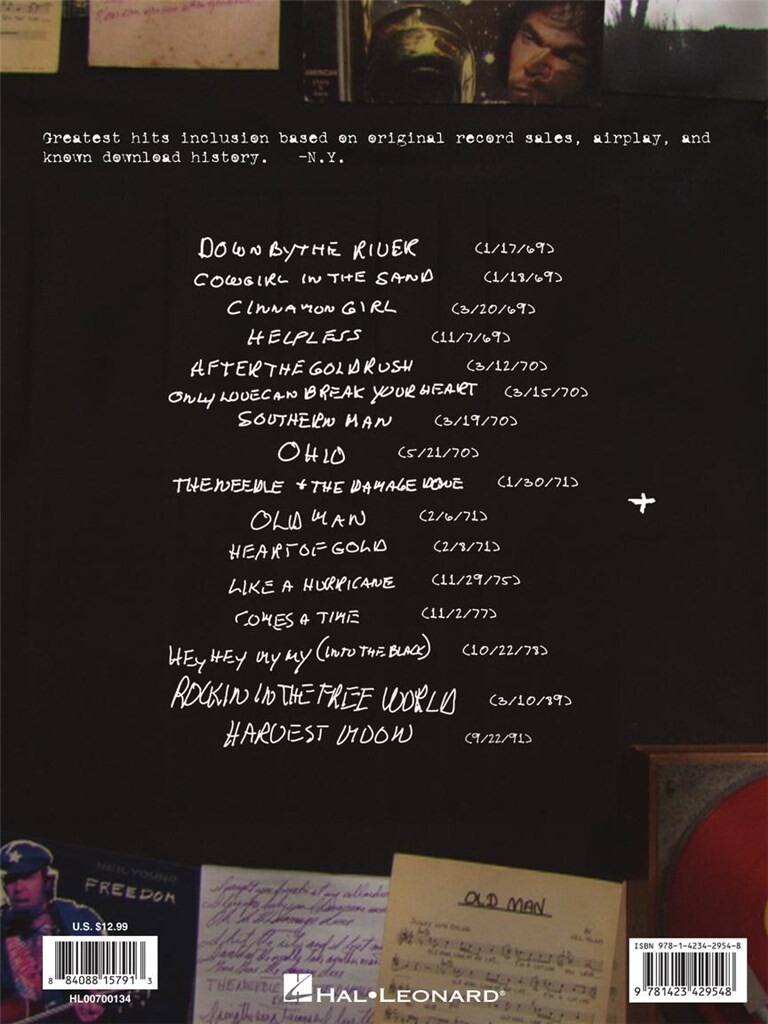 AMERICAN
Greatest hits inclusion based on original record sales, airplay, and
known download history. -N.Y.
DOWN BY THE RIVER (1/17/69)
COWGIRL IN THE SAND (1/18/69)
CINNAMON GIRL (3/20/69)
HELPLESS (11/7/69)
AFTER THE GOLDRUSH (3/12/70)
ONLY LOVE CAN BREAK YOUR HEART (3/15/70)
SOUTHERN MAN (3/19/70)
OHIO (5/21/70)
THE NEEDLE + THE DAMAGE DONE (1/30/71)
+
OLD MAN (2/6/71)
HEART OF GOLD (2/8/71)
LIKE A HURRICANE (11/29/75)
COMES A TIME (11/2/77)
HEY HEY MY MY (INTO THE BLACK) (10/22/78)
ROCKIN IN THE FREE WORLD (3/10/89)
HARVEST MOON (9/22/91)
NEIL YOUNG
FREEDOM
U.S. $12.99
8 84088 15791 3
HL00700134
THE NEEDLE
OLD MAN
HAL•LEONARD®
ISBN 978-1-4234-2954-8
9 781423 429548